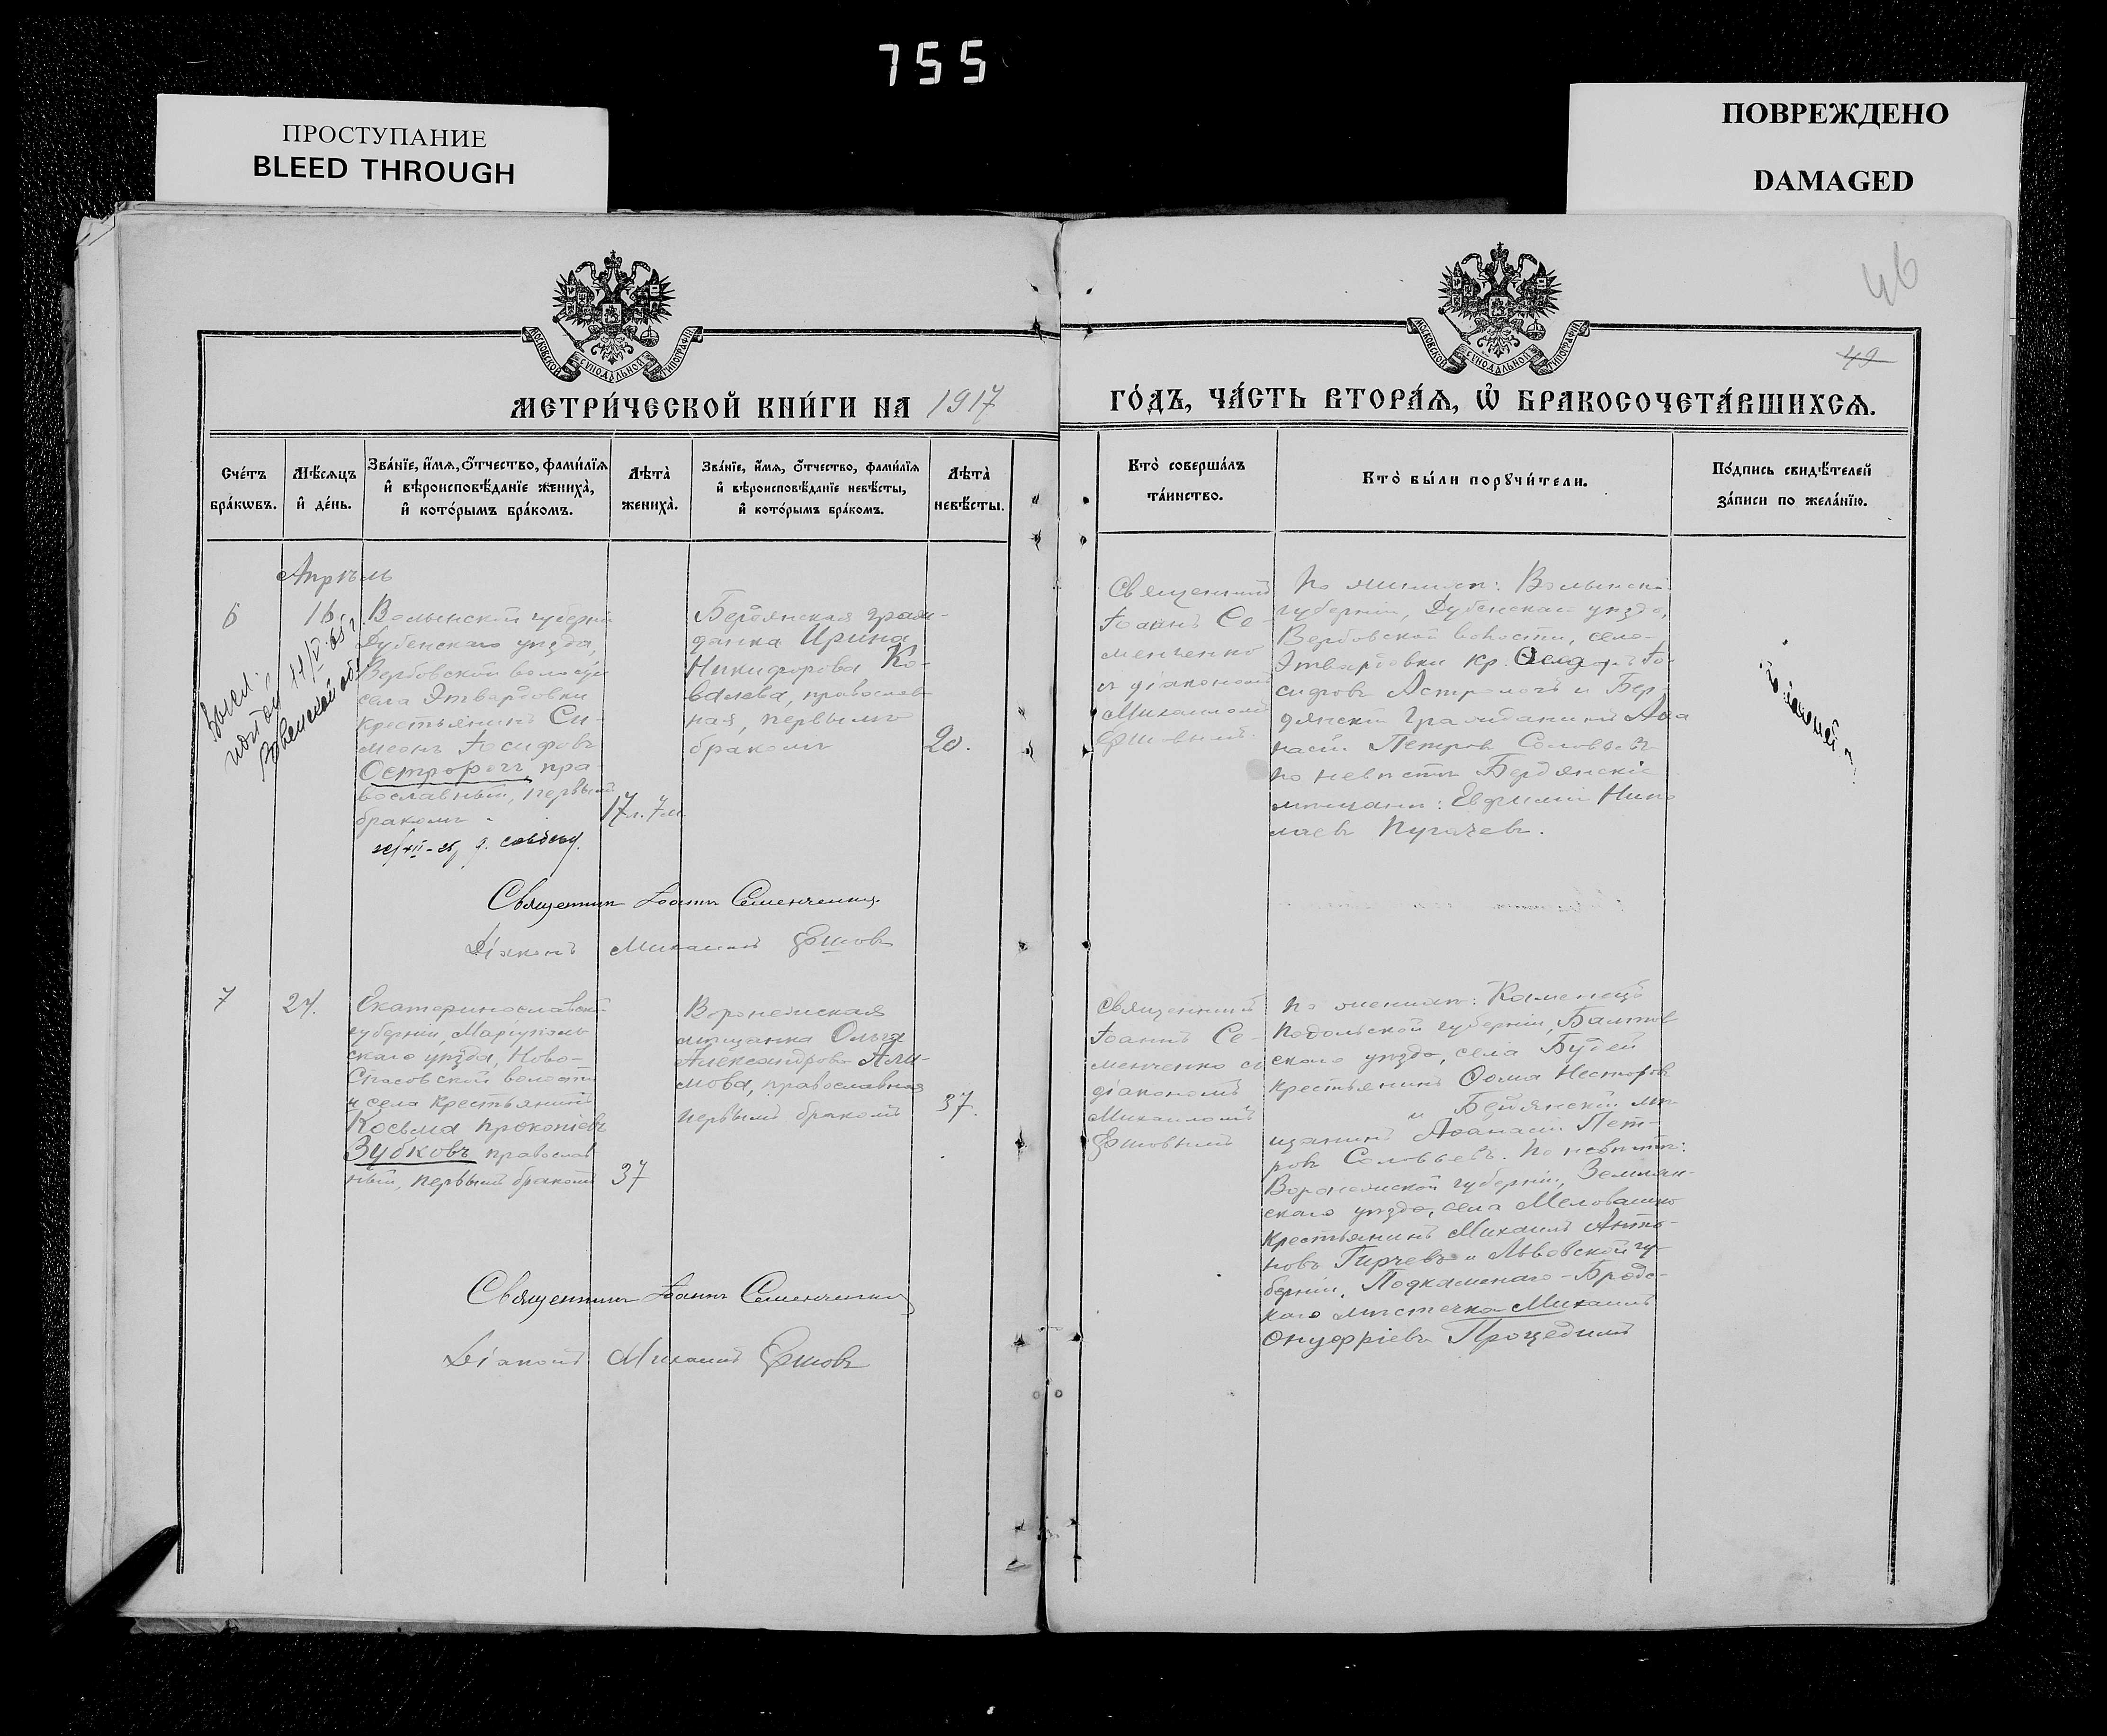 755
ПРОСТУПАНИЕ
BLEED THROUGH
ПОВРЕЖДЕНО
DAMAGED
46
49
МОСКОВСКОЙ СѴНОДАЛЬНОЙ ТИПОГРАФІИ
МОСКОВСКОЙ СѴНОДАЛЬНОЙ ТИПОГРАФІИ
МЕТРИ́ЧЕСКОЙ КНИ́ГИ НА 1917
ГО́ДЪ, ЧА́СТЬ ВТОРА́Ѧ, Ѽ БРАКОСОЧЕТА́ВШИХСѦ.
Сче́тъ
бра́кωвъ.
Мѣ́сѧцъ
и҆ де́нь.
Зва́нїе, и҆́мѧ, ѻ҆́тчество, фами́лїѧ
и҆ вѣроисповѣ́данїе жениха̀,
и҆ кото́рымъ бра́комъ.
Лѣта̀
жениха̀.
Зва́нїе, и҆́мѧ, ѻ҆́тчество, фами́лїѧ
и҆ вѣроисповѣ́данїе невѣ́сты,
и҆ кото́рымъ бра́комъ.
Лѣта̀
невѣ́сты.
Кто̀ соверша́лъ
та́инство.
Кто̀ бы́ли порꙋчи́тели.
По́дпись свидѣ́телей
за́писи по жела́нїю.
Апрѣль
6
16.
Волынской губерніи
Дубенскаго уѣзда,
Вербовской волости
села Этвардовки
крестьянинъ Си-
меонъ Іосифовъ
Остророгъ, пра-
вославный, первымъ
бракомъ
17л. 7м.
Бердянская граж-
данка Ирина
Никифорова Ко-
валева, православ-
ная, первымъ
бракомъ
20.
Священникъ
Іоаннъ Се-
менченко
съ діакономъ
Михаиломъ
Ершовымъ.
По женихѣ: Волынской
губерніи, Дубенскаго уѣзда,
Вербовской волости, села
Этвардовки кр. Іо-
сифовъ и Бер-
дянскій гражданинъ Аѳа
насій Петровъ Соловьевъ
по невѣстѣ Бердянскіе
мѣщане: Евфимій Нико
лаевъ Пугачевъ.
Священникъ Іоаннъ Семенченко
Діаконъ Михаилъ Ершовъ
7
27.
Екатеринославской
губерніи, Маріуполь
скаго уѣзда, Ново-
Спасовской волости
и села крестьянинъ
Косьма Прокопіевъ
Зубковъ православ
ный, первымъ бракомъ
37
Воронежская
мѣщанка Ольга
Александрова Али-
мова, православная
первымъ бракомъ
37.
Священникъ
Іоаннъ Се-
менченко съ
діакономъ
Михаиломъ
Ершовымъ
По женихѣ: Каменецъ
Подольской губерніи, Балтов
скаго уѣзда, села Будей
крестьянинъ Ѳома Несторовъ
и Бердянскій мѣ-
щанинъ Аѳанасій Пет-
ровъ Соловьевъ. По невѣстѣ:
Воронежской губерніи, Землян-
скаго уѣзда, села
крестьянинъ Михаилъ Анто-
новъ Гирчевъ и Львовской гу-
берніи, Подкаменаго-Бродс-
каго мѣстечка Михаилъ
Онуфріевъ Процедимъ
Священникъ Іоаннъ Семенченко
Діаконъ Михаилъ Ершовъ